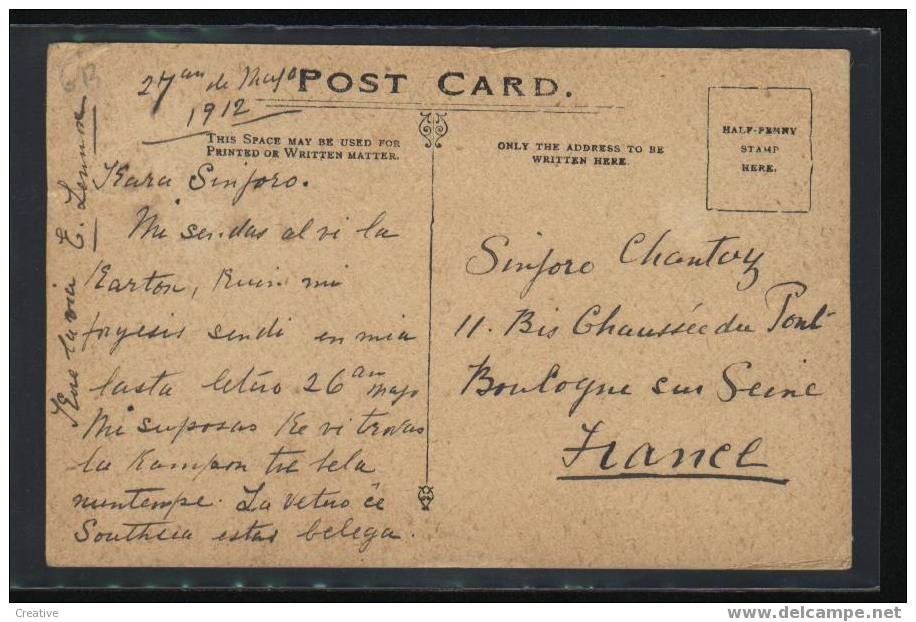 POST CARD.
27an de Majo
1912
THIS SPACE MAY BE USED FOR
PRINTED OR WRITTEN MATTER.
ONLY THE ADDRESS TO BE
WRITTEN HERE.
HALF-PENNY
STAMP
HERE.
Kara Sinjoro.
Mi sendas al vi la
Karton, kiun mi
forgesis sendi en mia
lasta letero 26an majo
Mi suposas ke vi trovas
la kampon tre bela
nuntempe. La vetero ĉe
Southsea estas belega.
Kore la via E.
Sinjoro Chantory
11. Bis Chaussée du Pont
Boulogne sur Seine
France
Creative
www.delcampe.net